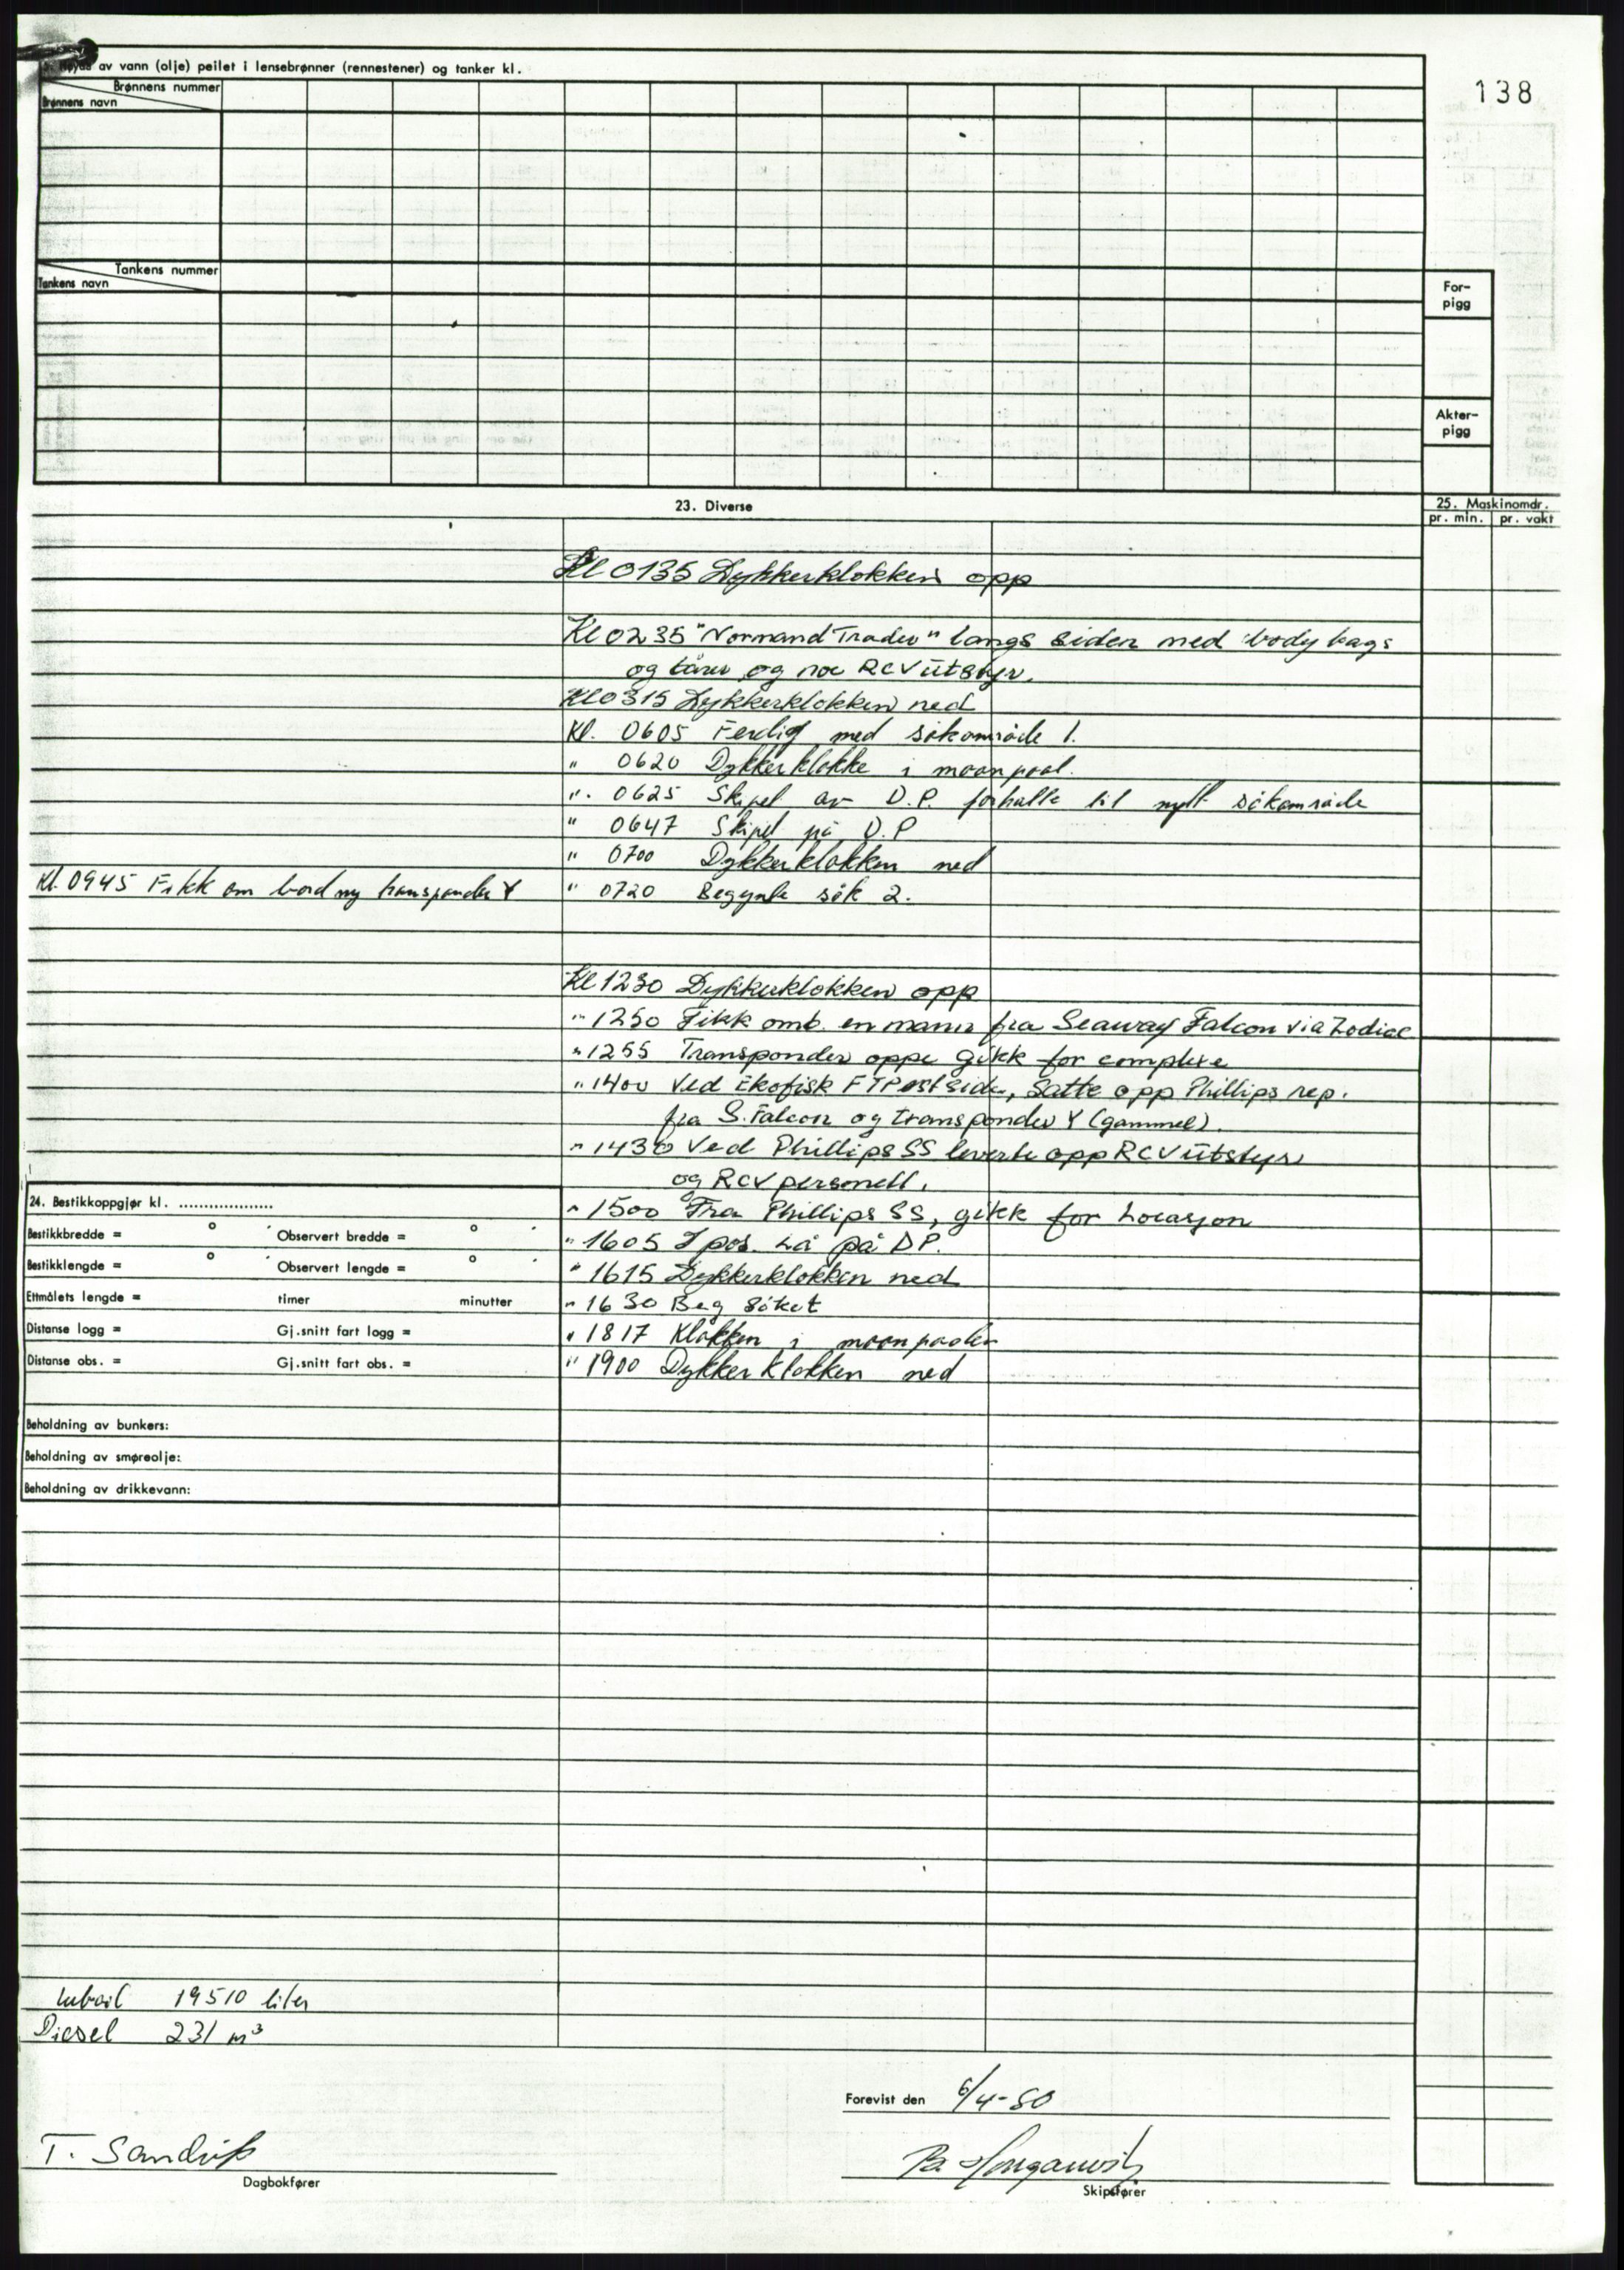 138
av vann (olje) peilet i lensebrønner (rennestener) og tanker kl.
Brønnens nummer
Brønnens navn
Tankens nummer
Tankens navn
For-
pigg
Akter-
pigg
23. Diverse
25. Maskinomdr.
pr. min. pr. vakt
Kl 0135 Dykkerklokken opp
Kl 0235 "Normand Trader" langs siden med body bags
og bårer og noe RCV ütstyr.
Kl 0315 Dykkerklokken ned
Kl. 0605 Ferdig med søkområde 1.
" 0620 Dykkerklokke i moonpool.
". 0625 Skipet av D.P. forhalte til nytt søkområde
" 0647 Skipet på D.P
" 0700 Dykkerklokken ned
Kl. 0945 Fikk om bord ny transponder Y
" 0720 Begynte søk 2.
Kl 1230 Dykkerklokken opp
" 1250 Fikk omb. en mann fra Seaway Falcon via Zodiac
" 1255 Transponder oppe gikk for complexe
" 1400 Ved Ekofisk FTP østside, Satte opp Phillips rep.
fra S. Falcon og transponder Y (gammel).
" 1430 Ved Phillips SS leverte opp RCV ütstyr
og RCV personell.
" 1500 Fra Phillips SS, gikk for Locasjon
" 1605 I pos. Lå på DP.
" 1615 Dykkerklokken ned
" 1630 Beg søket
" 1817 Klokken i moonpoolen
" 1900 Dykkerklokken ned
24. Bestikkoppgjør kl. ...................
Bestikkbredde = o ' Observert bredde = o '
Bestikklengde = o ' Observert lengde = o '
Ettmålets lengde = timer minutter
Distanse logg = Gj.snitt fart logg =
Distanse obs. = Gj.snitt fart obs. =
Beholdning av bunkers:
Beholdning av smøreolje:
Beholdning av drikkevann:
Luboil 19510 liter
Diesel 231 m³
Forevist den 6/4-80
T. Sandvik
Dagbokfører
Skipsfører